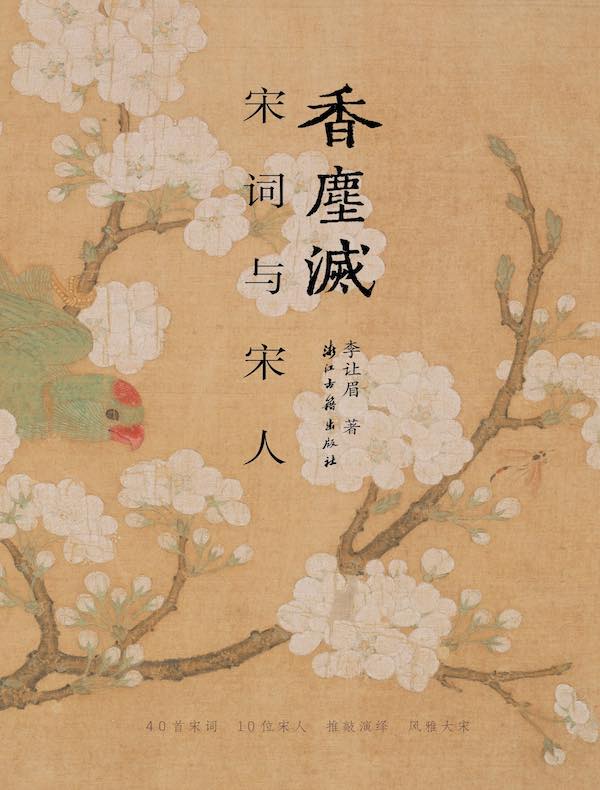 香塵滅
宋词与宋人
李让眉 著
浙江古籍出版社
40首宋词 10位宋人 推敲演绎 风雅大宋